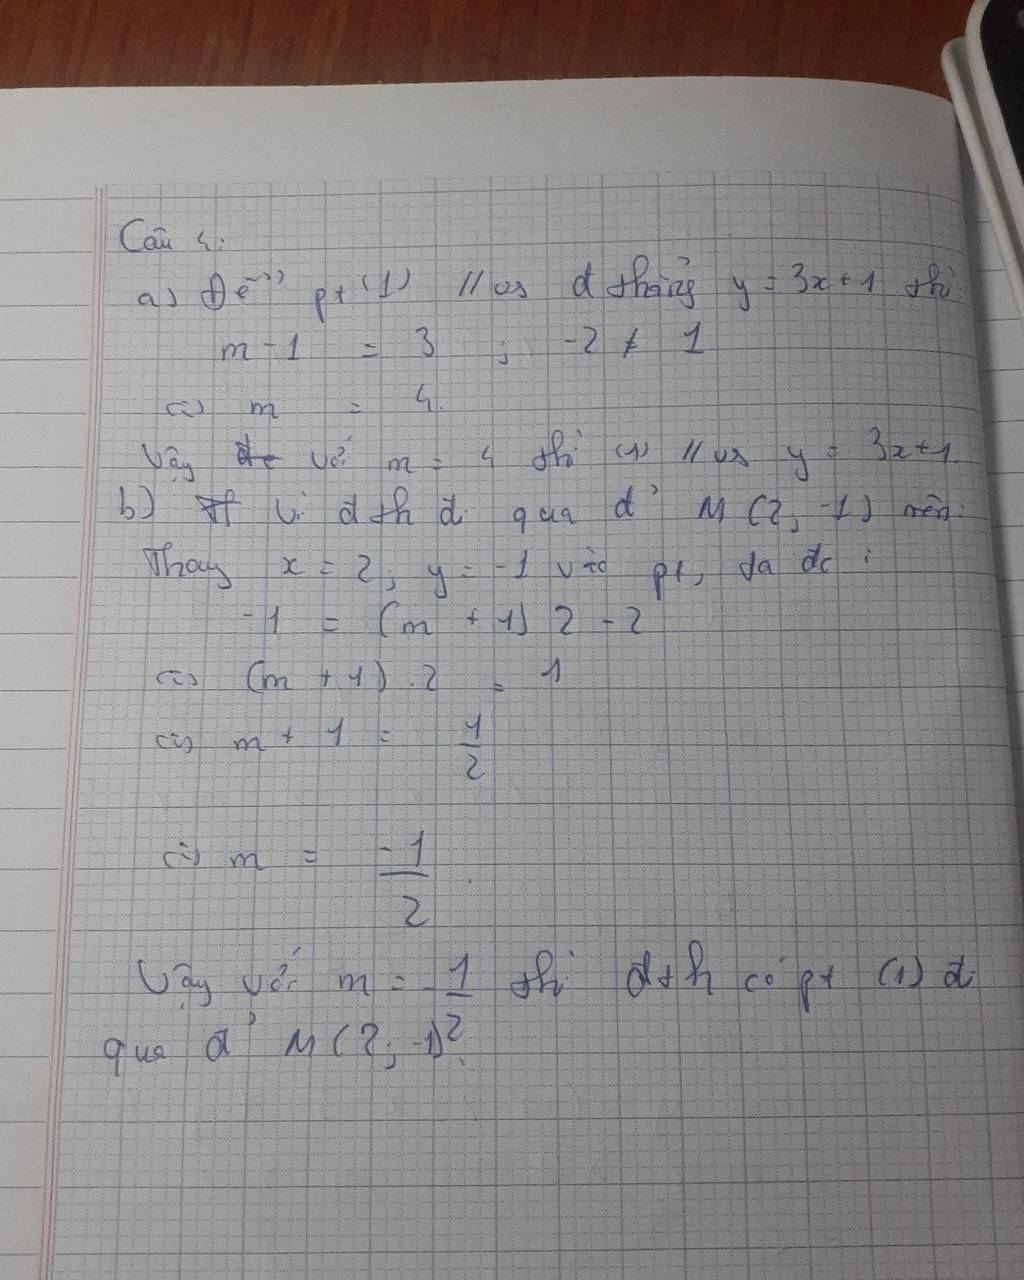 Câu 4:
a) Để pt (1) // vs đ thẳng y = 3x + 1 thì
m - 1 = 3 ; -2 ≠ 1
<=> m = 4.
Vậy với m = 4 thì (1) // vs y = 3x + 1
b) Vì đ th đi qua đ' M (2; -1) nên:
Thay x = 2; y = -1 vào pt, ta đc :
-1 = (m + 1) 2 - 2
<=> (m + 1) . 2 = 1
<=> m + 1 = 1/2
<=> m = -1/2.
Vậy với m = -1/2 thì đth có pt (1) đi
qua đ' M (2; -1).